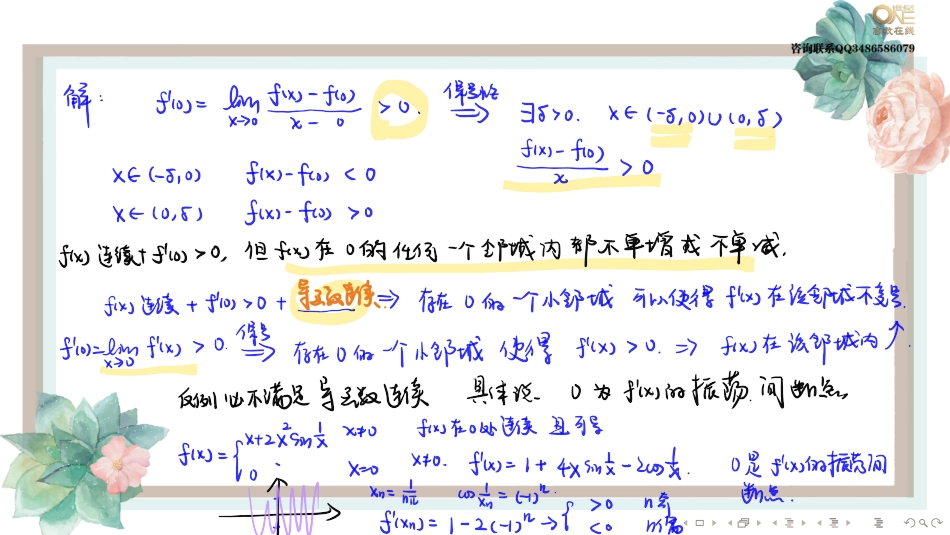 ONE
高数在线
咨询联系QQ3486586079
解: f'(0) = lim_{x→0} \frac{f(x)-f(0)}{x-0} > 0. 保号性 ⟹ ∃δ>0. x∈(-δ,0)∪(0,δ)
\frac{f(x)-f(0)}{x} > 0
x∈(-δ,0) f(x)-f(0) < 0
x∈(0,δ) f(x)-f(0) > 0
f(x)连续+f'(0)>0, 但f(x)在0的任何一个邻域内都不单增或不单减.
f(x)连续 + f'(0)>0 + 导函数连续 ⟹ 存在0的一个小邻域 可以使得 f'(x)在该邻域不变号.
f'(0)=lim_{x→0} f'(x) > 0. 保号 ⟹ 存在0的一个小邻域 使得 f'(x)>0. ⟹ f(x)在该邻域内↑.
反例必不满足导函数连续 具体说. 0为f'(x)的振荡间断点.
f(x)= { x+2x²sin\frac{1}{x} x≠0 f(x)在0处连续且可导
0 x=0 x≠0. f'(x)=1+4x sin\frac{1}{x}-2cos\frac{1}{x}. 0是f'(x)的振荡间
断点.
x_n=\frac{1}{nπ} cos\frac{1}{x_n}=(-1)^n.
f'(x_n)=1-2(-1)^n → { >0 n奇
<0 n偶